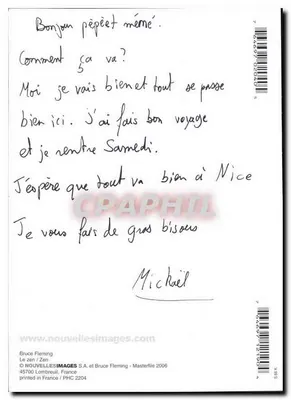 Bonjour pépé et mémé.
Comment ça va?
Moi je vais bien et tout se passe
bien ici. J'ai fais bon voyage
et je rentre Samedi.
J'éspère que tout va bien à Nice
CPAPHIL
Je vous fais de gros bisous
Mickaël
www.nouvellesimages.com
Bruce Fleming
Le zen / Zen
© NOUVELLES IMAGES S.A. et Bruce Fleming - Masterfile 2006
45700 Lombreuil, France
printed in France / PHC 2204